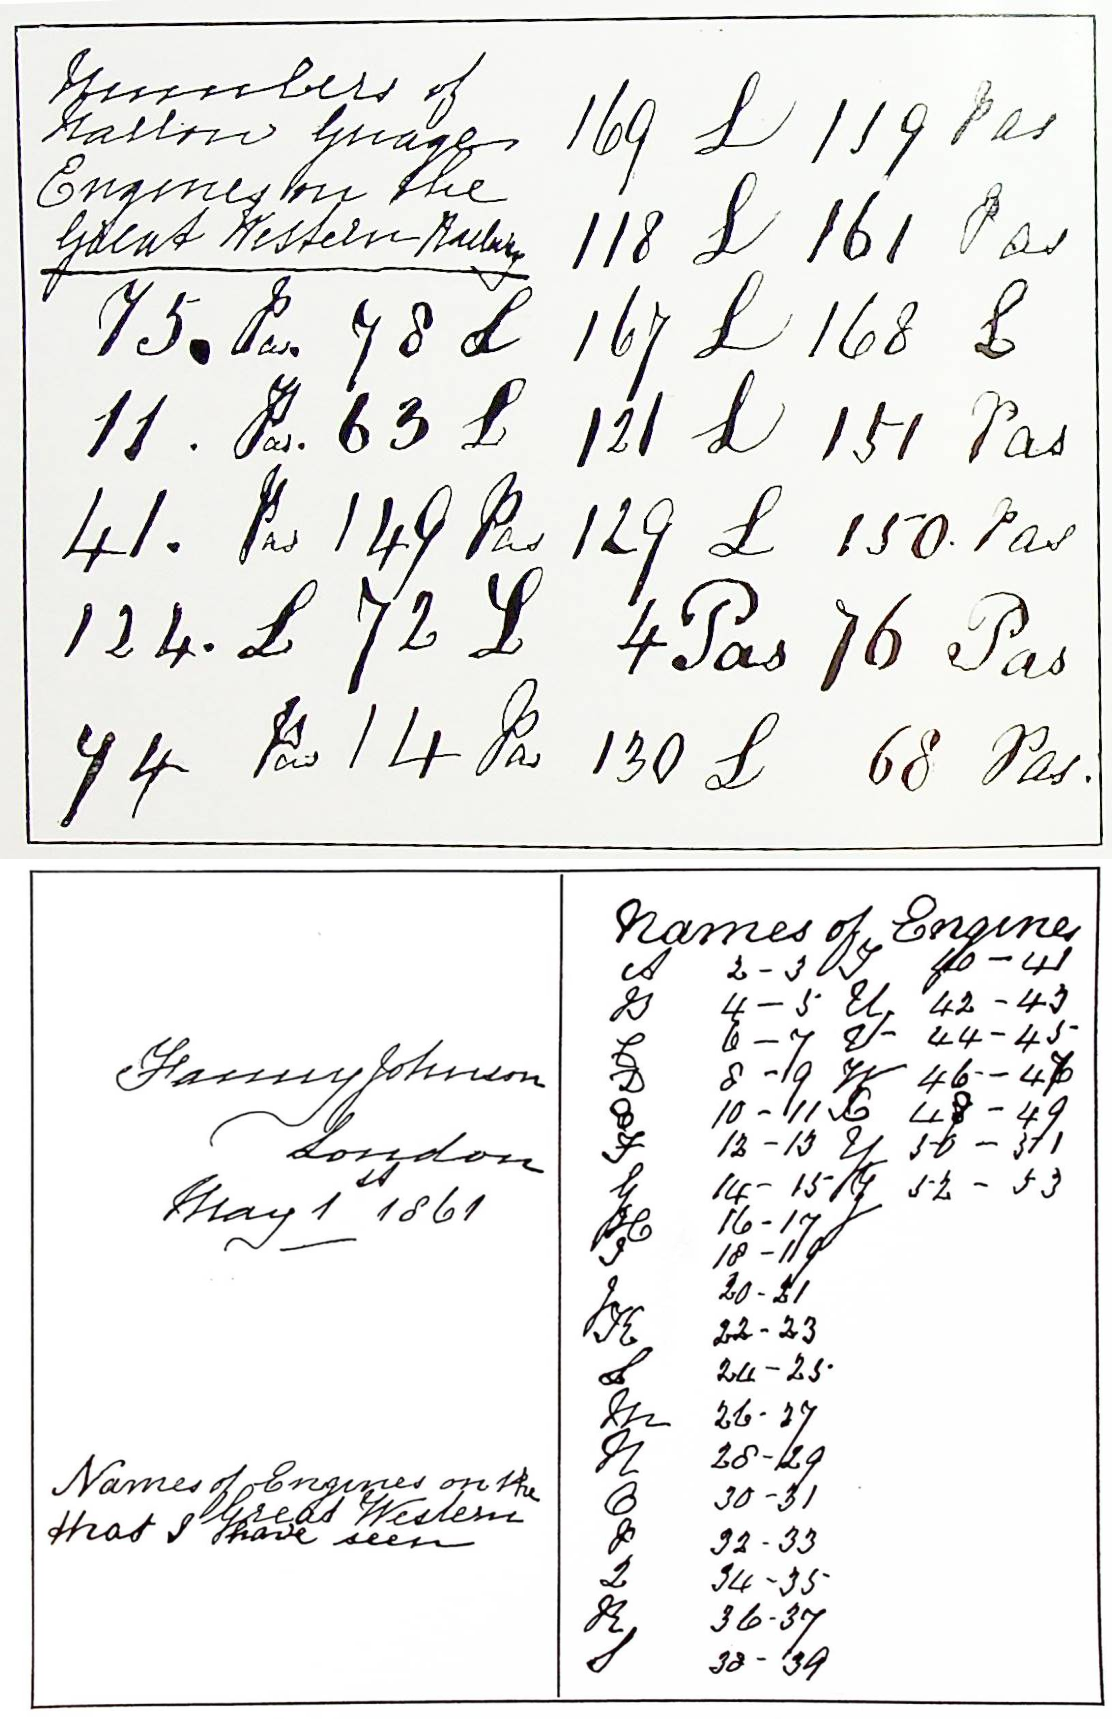 Numbers of
Narrow Guage
Engines on the
Great Western Railway
75. Pas. 78 L
11. Pas. 63 L
41. Pas 149 Pas
124. L 72 L
74 Pas 14 Pas
169 L 159 Pas
118 L 161 Pas
167 L 168 L
121 L 151 Pas
129 L 150. Pas
4 Pas 76 Pas
130 L 68 Pas.
Fanny Johnson
London
May 1st 1861
Names of Engines on the
Great Western
that I have seen
Names of Engines
A 2-3 T 40-41
B 4-5 U 42-43
C 6-7 V 44-45
D 8-9 W 46-47
E 10-11 X 48-49
F 12-13 Y 50-51
G 14-15 Z 52-53
H 16-17
I 18-19
J 20-21
K 22-23
L 24-25
M 26-27
N 28-29
O 30-31
P 32-33
Q 34-35
R 36-37
S 38-39